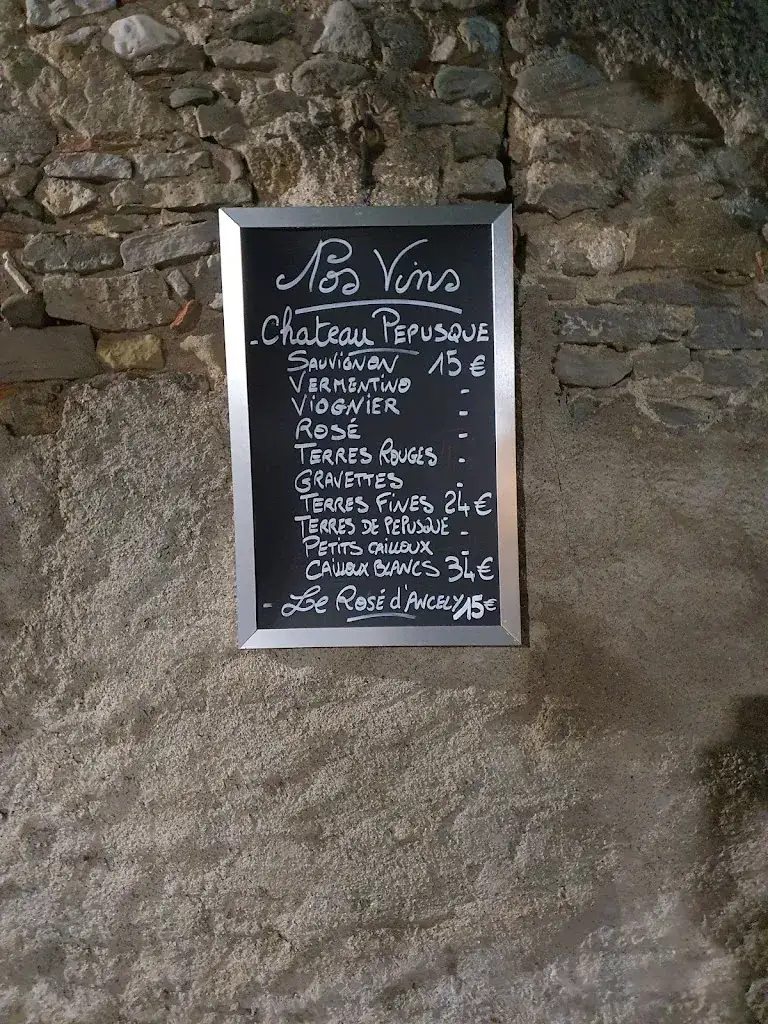 Nos Vins
- Chateau PEPUSQUE
SAUVIGNON 15 €
VERMENTINO -
VIOGNIER -
ROSÉ -
TERRES ROUGES -
GRAVETTES -
TERRES FINES 24 €
TERRES DE PEPUSQUE -
PETITS CAILLOUX -
CAILLOUX BLANCS 34 €
- Le ROSÉ d'ANCELY 15 €